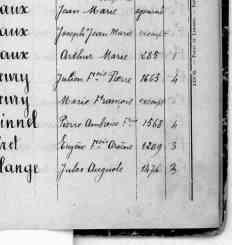 aux Jean Marie
aux Joseph Jean Marie exempt
aux Arthur Marie 285 1
eury Julien Fçois Pierre 1663 4
eury Marie François exempt
innel Pierre Ambroise 1568 4
ret Eugène Arsène 1209 3
lange Jules Auguste 1476 3